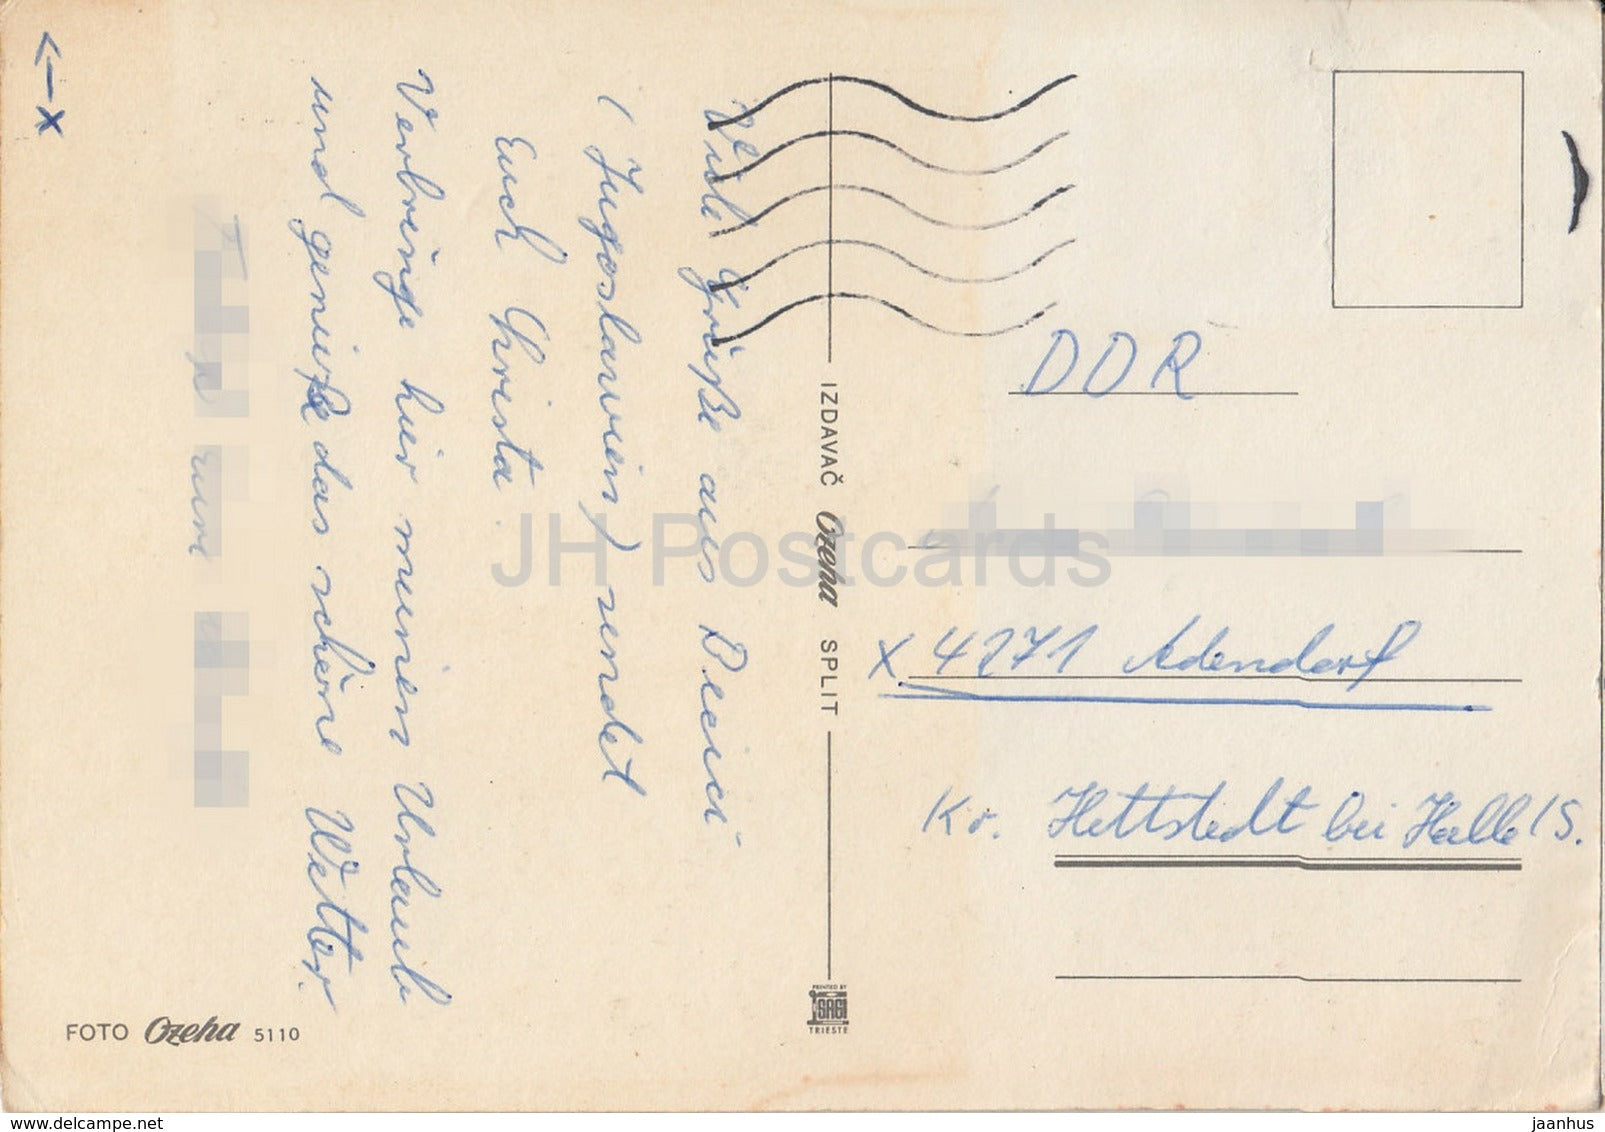 Viele Grüße aus Brecici
(Jugoslawien) sendet
Euch Christa.
Verbringe hier meinen Urlaub
und genieße das schöne Wetter.
x
FOTO Ozeha 5110
IZDAVAČ Ozeha SPLIT
PRINTED BY
SAGI
TRIESTE
DDR
x 4271 Adendorf
Kr. Hettstedt bei Halle/S.
JH Postcards
www.delcampe.net
jaanhus